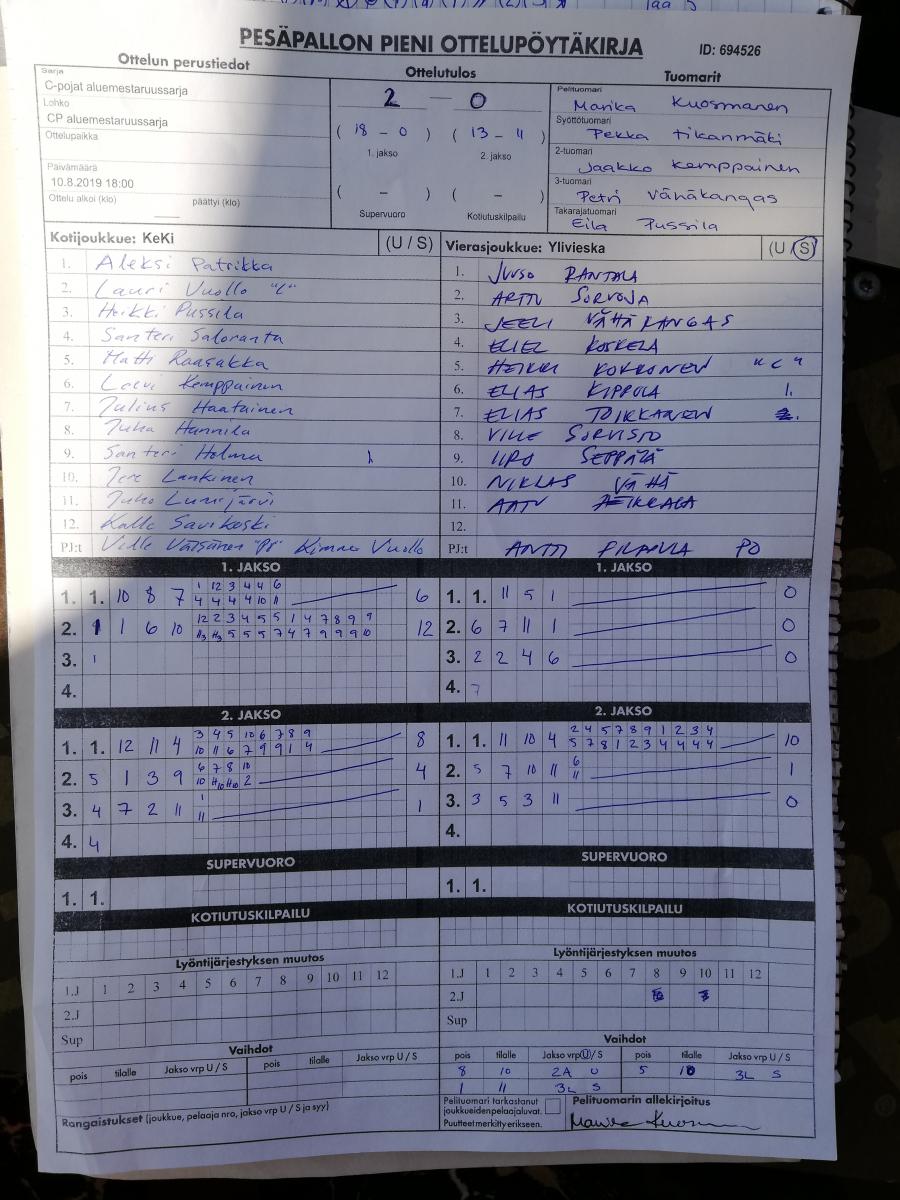 PESÄPALLON PIENI OTTELUPÖYTÄKIRJA
ID: 694526
Ottelun perustiedot
Sarja
C-pojat aluemestaruussarja
Lohko
CP aluemestaruussarja
Ottelupaikka
Päivämäärä
10.8.2019 18:00
Ottelu alkoi (klo) päättyi (klo)
Ottelutulos
2 – 0
( 18 – 0 ) ( 13 – 11 )
1. jakso 2. jakso
( – ) ( – )
Supervuoro Kotiutuskilpailu
Tuomarit
Pelituomari
Marika Kuosmanen
Syöttötuomari
Pekka Tikanmäki
2-tuomari
Jaakko Kemppainen
3-tuomari
Petri Vähäkangas
Takarajatuomari
Eila Pussila
Kotijoukkue: KeKi (U / S)
1. Aleksi Patrikka
2. Lauri Vuollo "C"
3. Heikki Pussila
4. Santeri Saloranta
5. Matti Raasakka
6. Leevi Kemppainen
7. Julius Haatainen
8. Juha Hannila
9. Santeri Holma
10. Jere Lankinen
11. Juho Lumijärvi
12. Kalle Savikoski
PJ:t Ville Väisänen "PJ" Kimmo Vuollo
Vierasjoukkue: Ylivieska (U / S)
1. JUUSO RANTALA
2. ARTTU SORVOJA
3. JEELI VÄHÄKANGAS
4. ELIEL KOSKELA
5. HEIKKI KOKKONEN "C"
6. ELIAS KIPPOLA 1.
7. ELIAS TOIKKANEN 2.
8. VILLE SORVISTO
9. URO SEPPÄLÄ
10. NIKLAS VÄHÄ
11. AATU HEIKKALA
12.
PJ:t ANTTI PO
1. JAKSO
1. 1. 10 8 7 1 12 3 4 4 6 6
4 4 4 4 10 11
2. 1 1 6 10 12 2 3 4 5 5 1 4 7 8 9 9 12
5 5 5 7 4 7 9 9 9 10
3. 1
4.
1. JAKSO
1. 1. 11 5 1 0
2. 6 7 11 1 0
3. 2 2 4 6 0
4. 7
2. JAKSO
1. 1. 12 11 4 3 4 5 10 6 7 8 9 8
10 11 6 7 9 9 1 4
2. 5 1 3 9 6 7 8 10 4
10 2
3. 4 7 2 11 1 1
11
4. 4
2. JAKSO
1. 1. 11 10 4 2 4 5 7 8 9 1 2 3 4 10
5 7 8 1 2 3 4 4 4 4
2. 5 7 10 11 6 1
11
3. 3 5 3 11 0
4.
SUPERVUORO
1. 1.
SUPERVUORO
1. 1.
KOTIUTUSKILPAILU
KOTIUTUSKILPAILU
Lyöntijärjestyksen muutos
1.J 1 2 3 4 5 6 7 8 9 10 11 12
2.J
Sup
Vaihdot
pois tilalle Jakso vrp U / S pois tilalle Jakso vrp U / S
Rangaistukset (joukkue, pelaaja nro, jakso vrp U / S ja syy)
Lyöntijärjestyksen muutos
1.J 1 2 3 4 5 6 7 8 9 10 11 12
2.J
Sup
Vaihdot
pois tilalle Jakso vrp U / S pois tilalle Jakso vrp U / S
8 10 2A U 5 10 3L S
1 11 3L S
Pelituomari tarkastanut
joukkueiden pelaajaluvat.
Puutteet merkitty erikseen.
Pelituomarin allekirjoitus